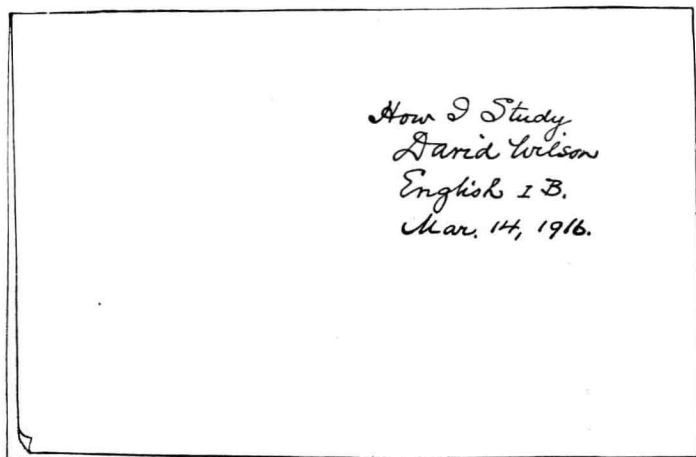 How I Study
David Wilson
English I B.
Mar. 14, 1916.